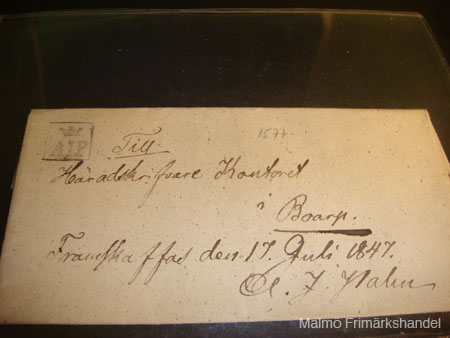 AJP
1577
Till
Häradskrifvare Kontoret
i Boarp.
Framskaffas den 17. Juli 1847.
J. Hahn
Malmö Frimärkshandel